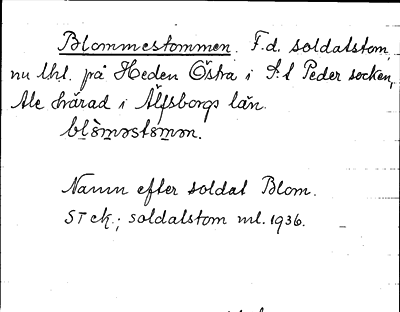 Blommestommen. F.d. soldatstom,
nu lhl. på Heden Östra i S:t Peder socken,
Ale härad i Älfsborgs län.
Namn efter soldat Blom.
ST ck.; soldatstom ml. 1936.